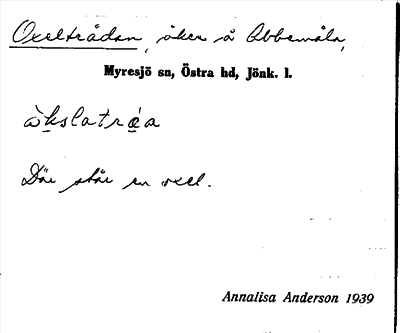 Oxelträdan, åker å Abbemåla,
Myresjö sn, Östra hd, Jönk. l.
àkslatráa
Där står en oxel.
Annalisa Anderson 1939